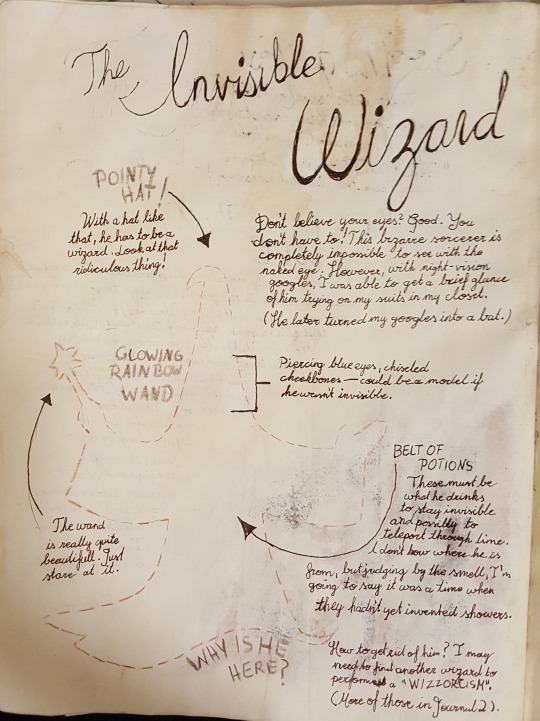 The Invisible
Wizard
POINTY
HAT!
With a hat like
that, he has to be a
wizard. Look at that
ridiculous thing!
Don't believe your eyes? Good. You
don't have to! This bizarre sorcerer is
completely impossible to see with the
naked eye. However, with night-vision
googles, I was able to get a brief glance
of him trying on my suits in my closet.
(He later turned my googles into a bat.)
GLOWING
RAINBOW
WAND
Piercing blue eyes, chiseled
cheekbones — could be a model if
he wasn't invisible.
BELT OF
POTIONS
These must be
what he drinks
to stay invisible
and possibly to
teleport through time.
I don't know where he is
from, but judging by the smell, I'm
going to say it was a time when
they hadn't yet invented showers.
The wand
is really quite
beautifull. Just
stare at it.
WHY IS HE
HERE?
How to get rid of him? I may
need to find another wizard to
perform a "WIZZORCISM".
(More of those in Journal 2).